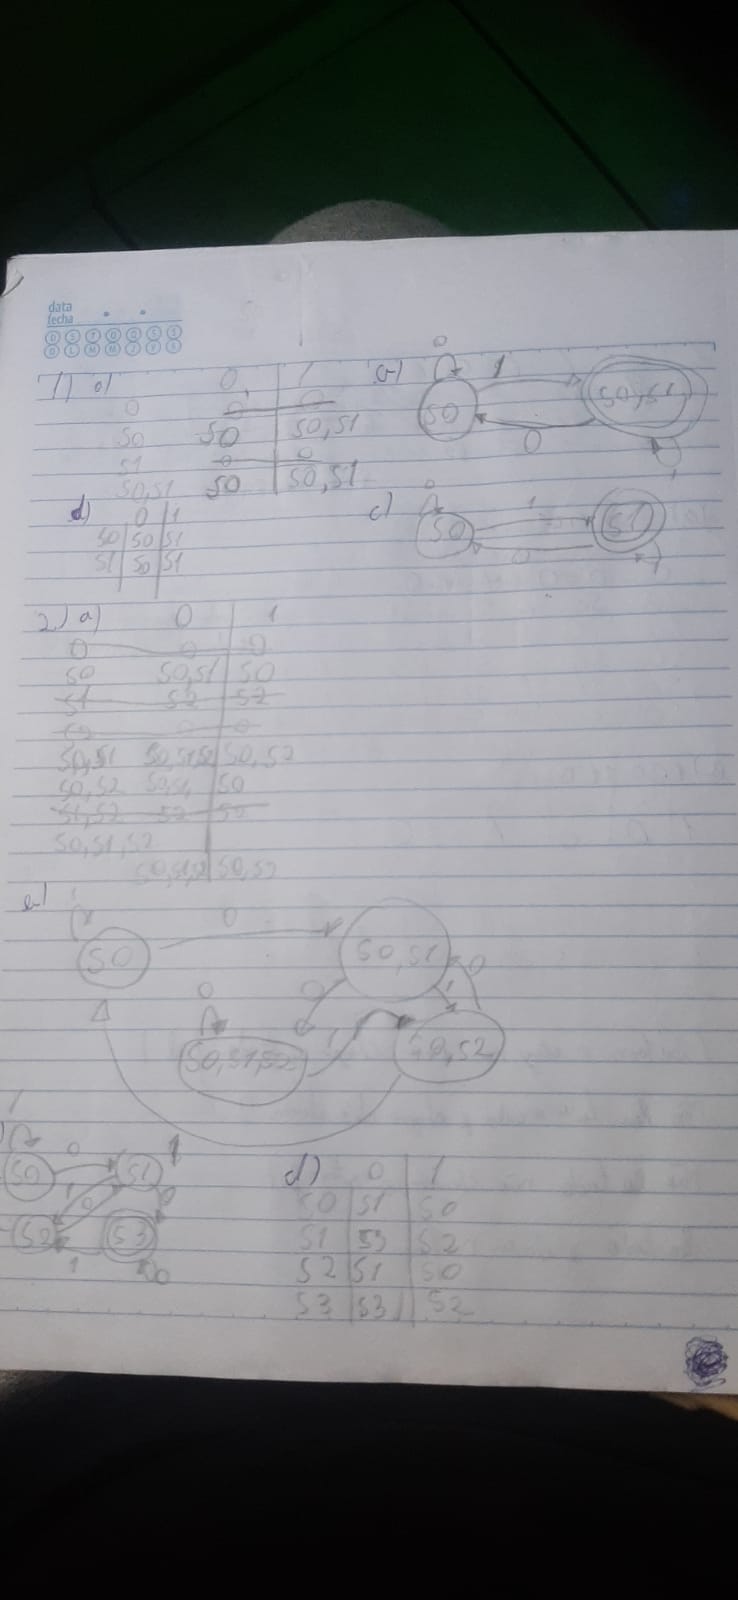 data
fecha
D S T Q Q S S
D L M M J V S
1) a) 0 1
0 0 0
S0 S0 S0,S1
S1 0 0
S0,S1 S0 S0,S1
0
1
S0 S0,S1
0
1
d) 0 1
S0 S0 S1
S1 S0 S1
c) 0
1
S0 S1
0
1
2) a) 0 1
0 0 0
S0 S0,S1 S0
S1 S2 S2
S2 0 0
S0,S1 S0,S1,S2 S0,S2
S0,S2 S0,S1 S0
S1,S2 S2
S0,S1,S2
S0,S1,S2 S0,S2
1
0
S0 S0,S1
0 0 1 0
S0,S1,S2 1 S0,S2
1
0 1
S0 S1
1 0 0
S2 S3
1 0
d) 0 1
S0 S1 S0
S1 S3 S2
S2 S1 S0
S3 S3 S2